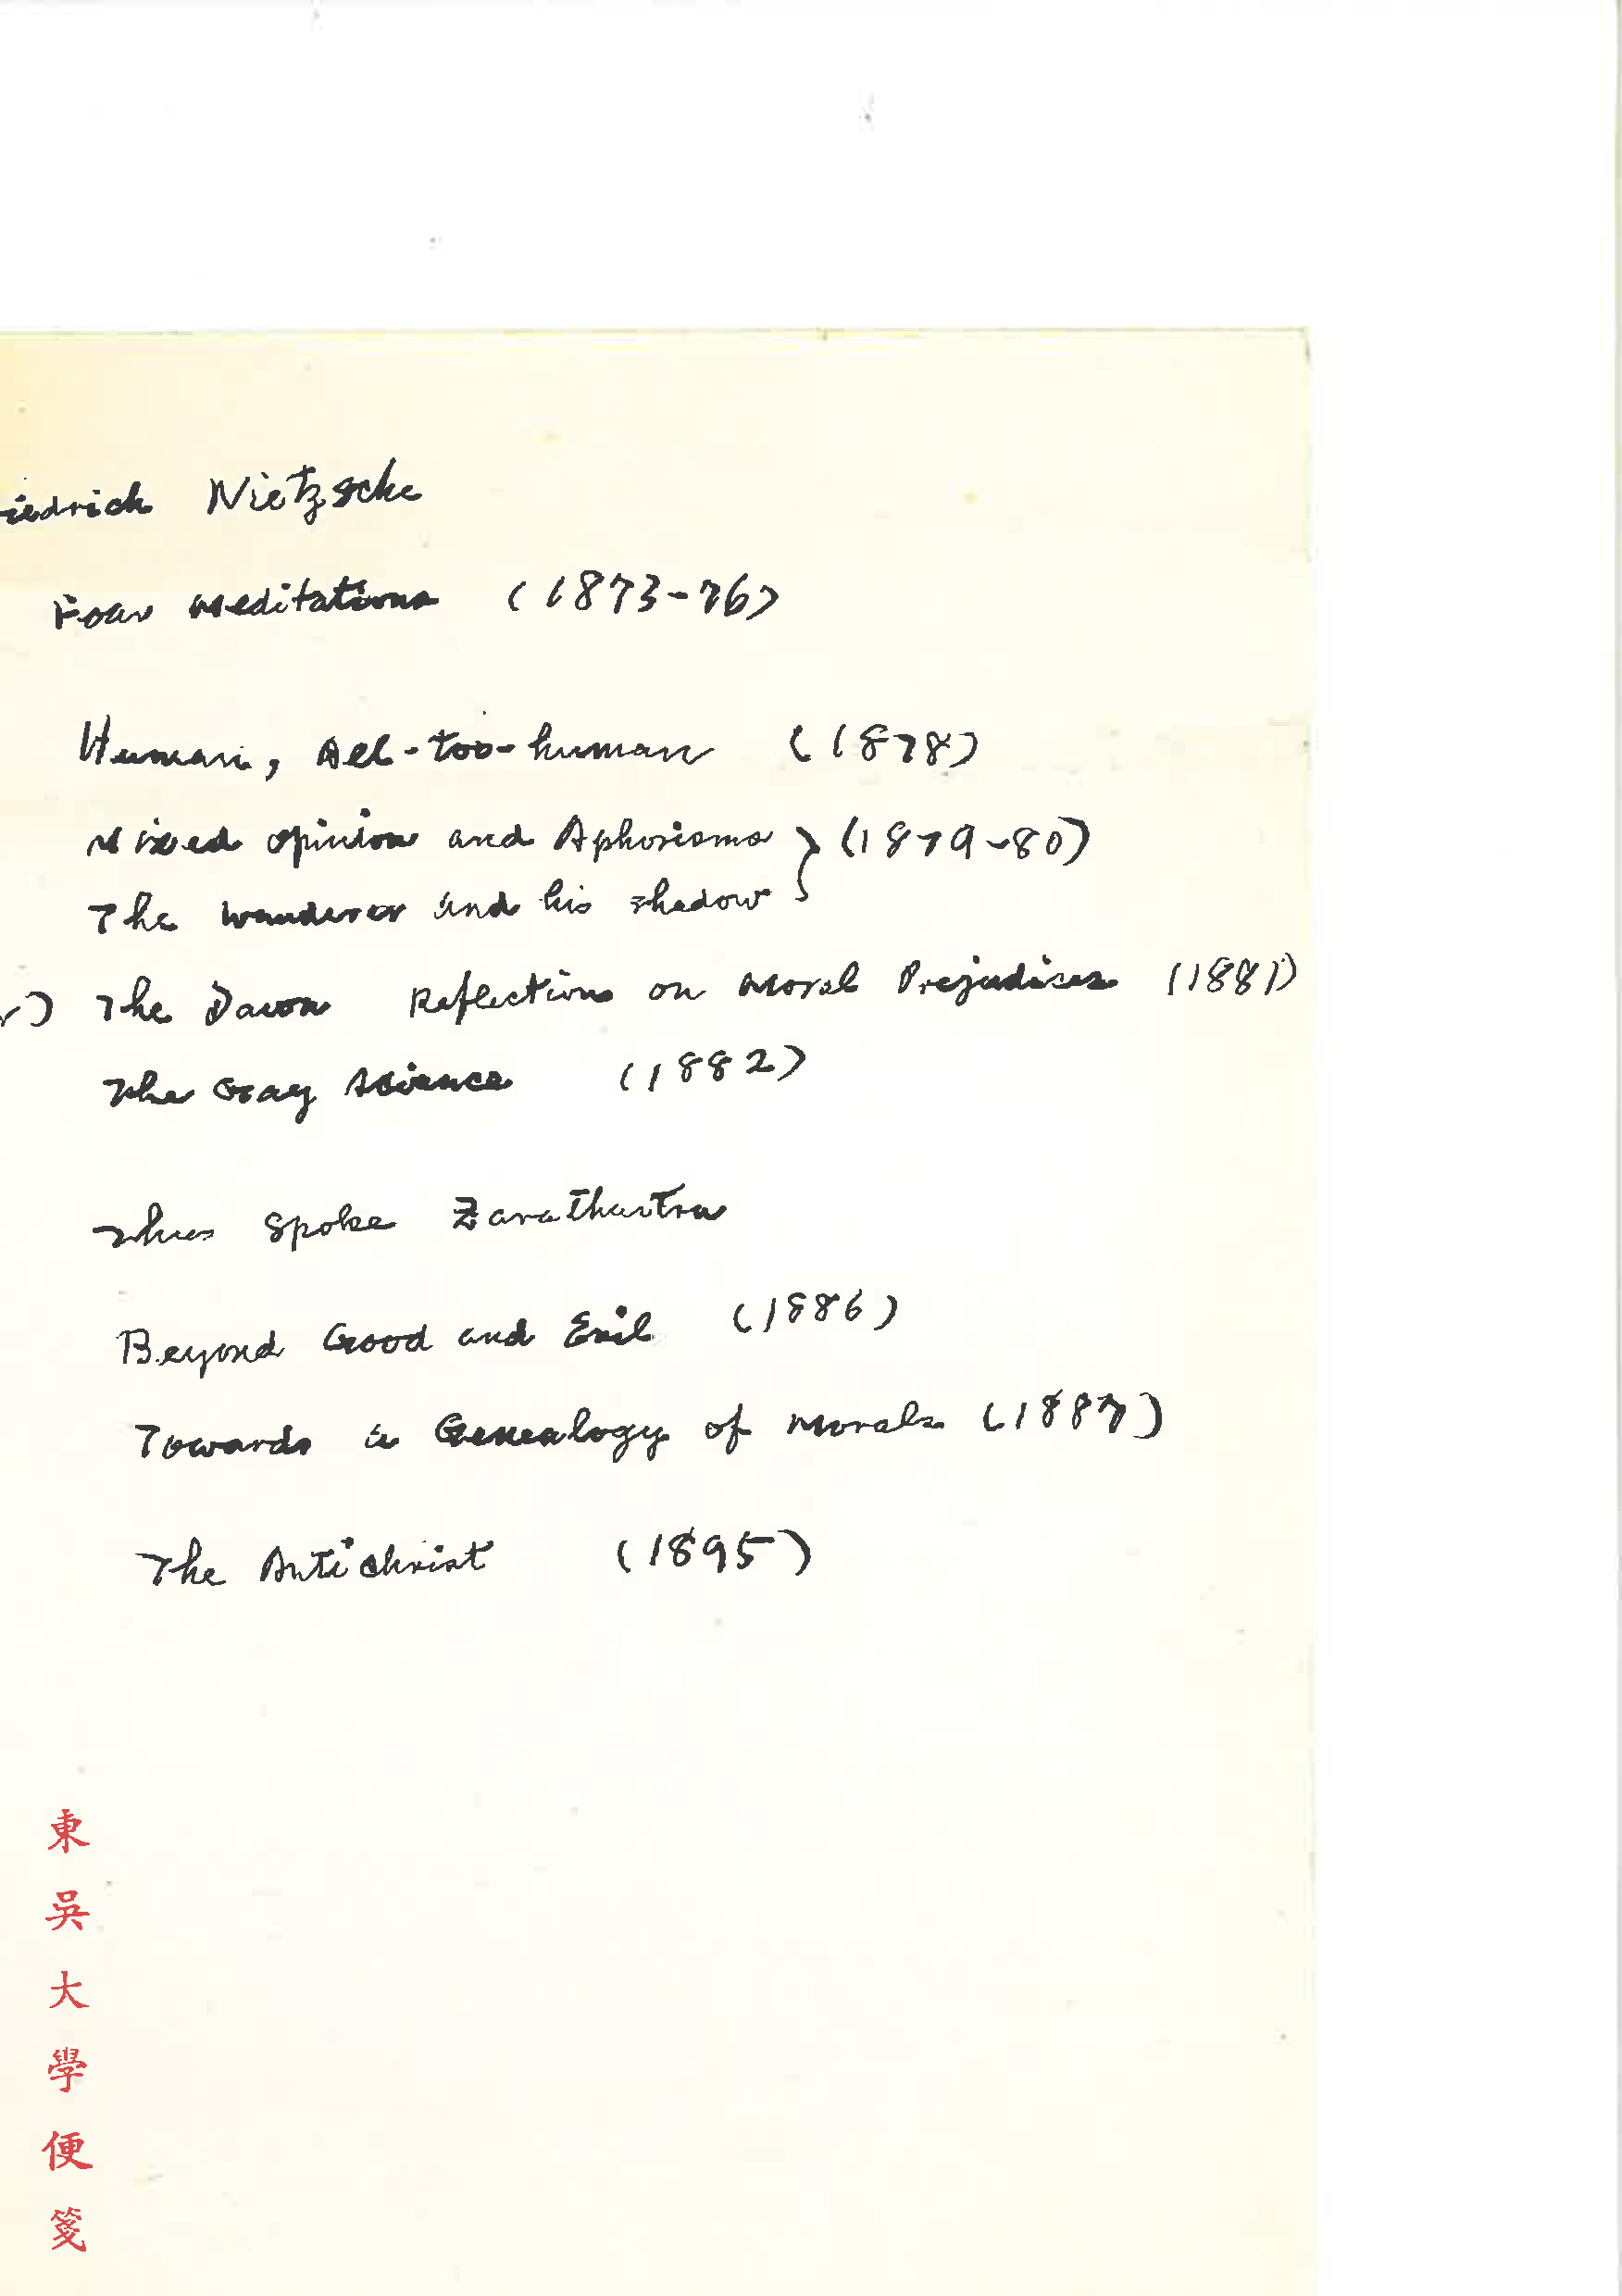 iedrich Nietzsche
Four Meditations (1873-76)
Human, All-too-human (1878)
Mixed opinion and Aphorisms } (1879-80)
The wanderer and his shadow
) The Dawn Reflections on Moral Prejudices (1881)
The Gay Science (1882)
Thus Spoke Zarathustra
Beyond Good and Evil (1886)
Towards a Genealogy of Morals (1887)
The Antichrist (1895)
東吳大學便箋